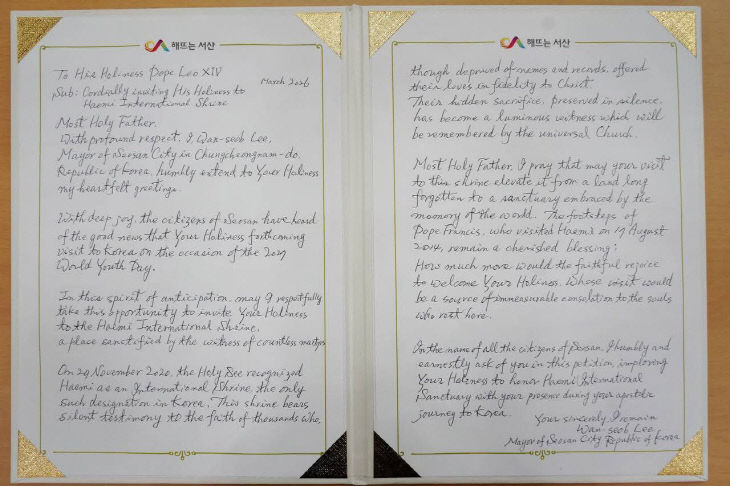 해뜨는 서산
To His Holiness Pope Leo XIV
March 2026
Sub: Cordially inviting His Holiness to
Haemi International Shrine
Most Holy Father,
With profound respect, I, Wan-seob Lee,
Mayor of Seosan City in Chungcheongnam-do,
Republic of Korea, humbly extend to Your Holiness
my heartfelt greetings.
With deep joy, the citizens of Seosan have heard
of the good news that Your Holiness forthcoming
visit to Korea on the occasion of the 2027
World Youth Day.
In this spirit of anticipation, may I respectfully
take this opportunity to invite Your Holiness
to the Haemi International Shrine,
a place sanctified by the witness of countless martyrs.
On 29 November 2020, the Holy See recognized
Haemi as an International Shrine, the only
such designation in Korea. This shrine bears
silent testimony to the faith of thousands who,
해뜨는 서산
though deprived of names and records, offered
their lives in fidelity to Christ.
Their hidden sacrifice, preserved in silence,
has become a luminous witness which will
be remembered by the universal Church.
Most Holy Father, I pray that may your visit
to this shrine elevate it from a land long
forgotten to a sanctuary embraced by the
memory of the world. The footsteps of
Pope Francis, who visited Haemi on 17 August
2014, remain a cherished blessing;
How much more would the faithful rejoice
to welcome Your Holiness, Whose visit would
be a source of immeasurable consolation to the souls
who rest here.
In the name of all the citizens of Seosan, I humbly and
earnestly ask of you in this petition, imploring
Your Holiness to honor Haemi International
Sanctuary with your presence during your apostolic
journey to Korea.
Your sincerely I remain
Wan-seob Lee
Mayor of Seosan City Republic of Korea